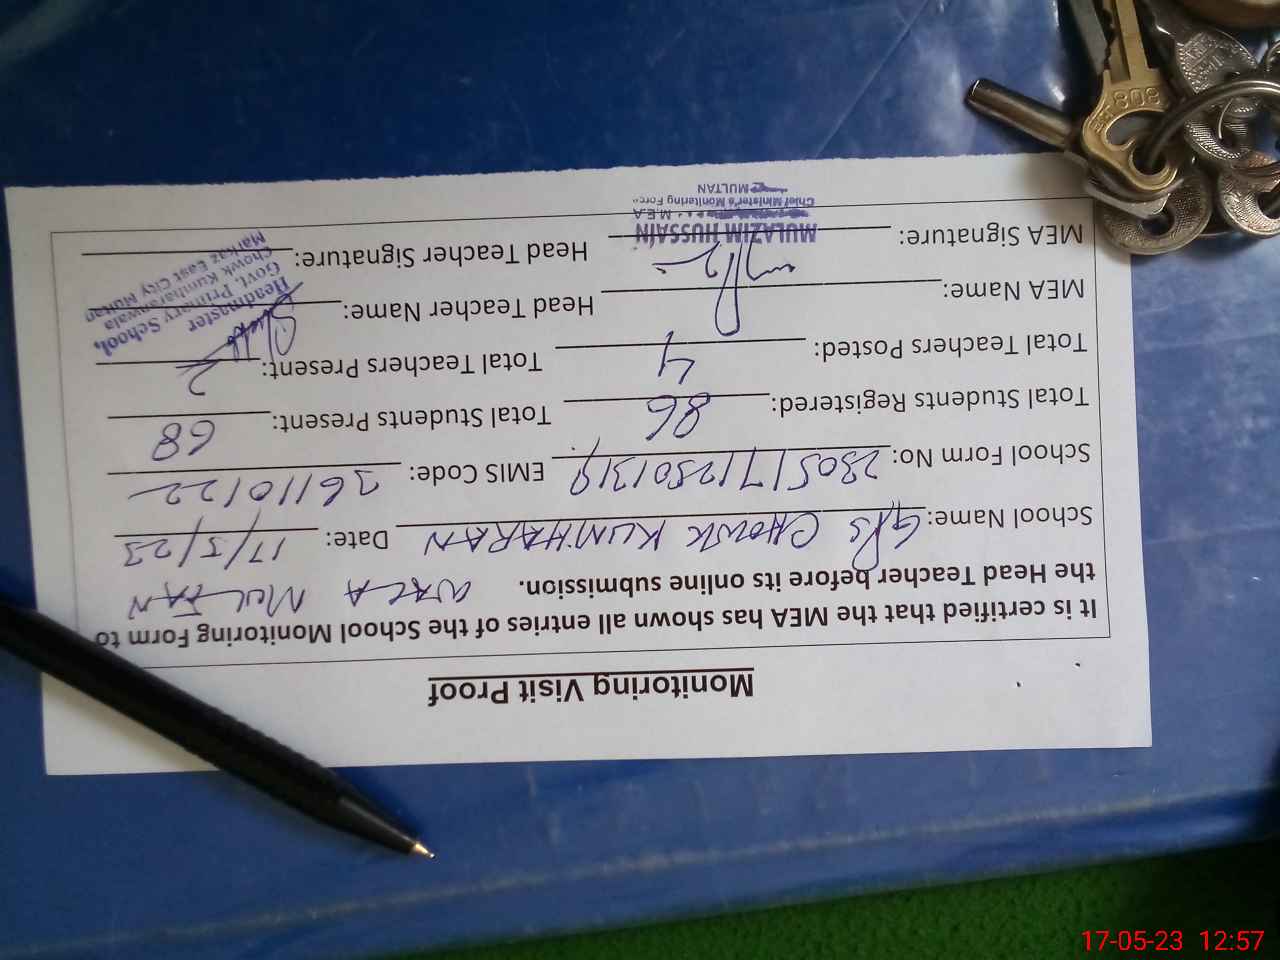 Monitoring Visit Proof
It is certified that the MEA has shown all entries of the School Monitoring Form to
the Head Teacher before its online submission. WALA MULTAN
School Name: GPS CHOWK KUMHARAN Date: 17/5/23
School Form No: 230517/250/319 EMIS Code: 36110122
Total Students Registered: 86 Total Students Present: 68
Total Teachers Posted: 4 Total Teachers Present: 2
MEA Name: Head Teacher Name:
MEA Signature: Head Teacher Signature:
MULAZIM HUSSAIN
M.E.A
Chief Minister's Monitoring Force
MULTAN
Headmaster
Govt. Primary School,
Chowk Kumharanwala
Markaz East City Multan
808
17-05-23 12:57